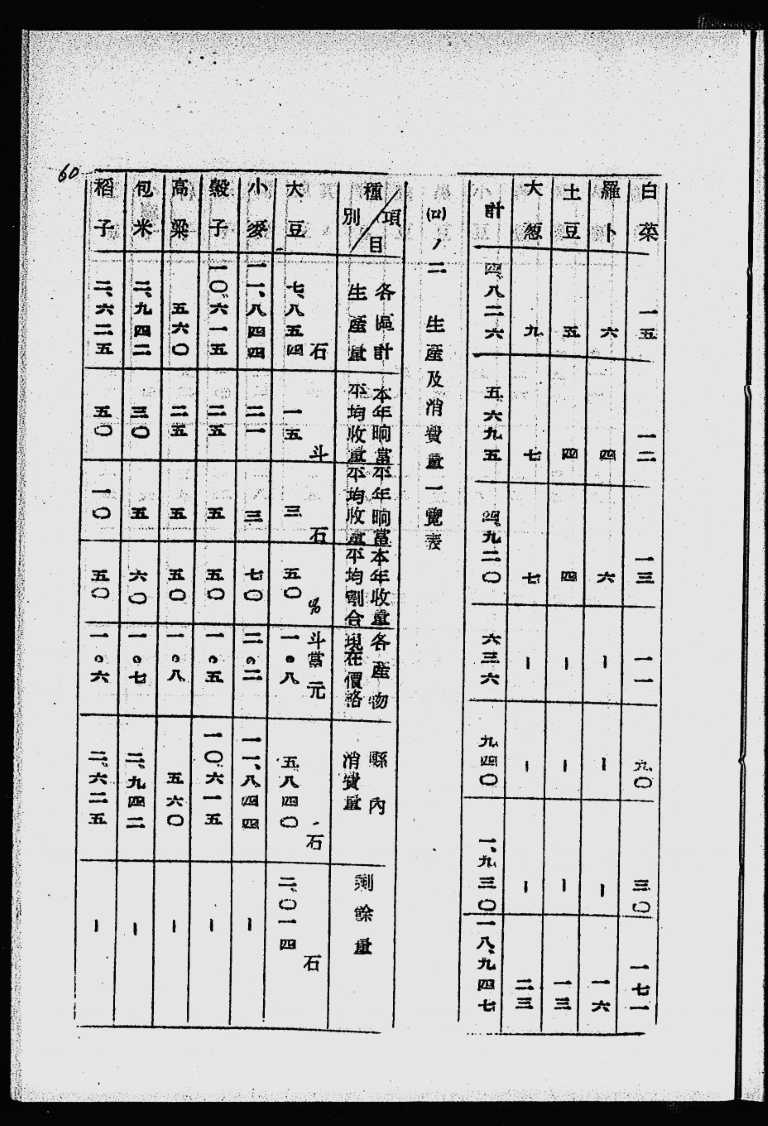 白菜 一五 一二 一三 一一 九〇 三〇 一七一
羅卜 六 四 六 ー ー ー 一六
土豆 五 四 四 ー ー ー 一三
大葱 九 七 七 ー ー ー 二三
計 四、八二六 五六九五 四、九二〇 六三六 九四〇 一、九三〇 一八、九四七
(ロ)ノ二 生產及消費量一覽表
種別/項目 各區計生產量 本年晌當平均收量 平年晌當平均收量 本年收量平均割合 各產物現在價格 縣內消費量 剩餘量
石 斗 石 % 斗當元 石 石
大豆 七、八五四 一五 三 五〇 一。八 五八四〇 二、〇一四
小麥 一一、八四四 二一 三 七〇 二。二 一一、八四四 ー
穀子 一〇六一五 二五 五 五〇 一。五 一〇六一五 ー
高粱 五六〇 二五 五 五〇 一。八 五六〇 ー
包米 二、九四二 三〇 五 六〇 一。七 二、九四二 ー
稻子 二、六二五 五〇 一〇 五〇 一。六 二、六二五 ー
60